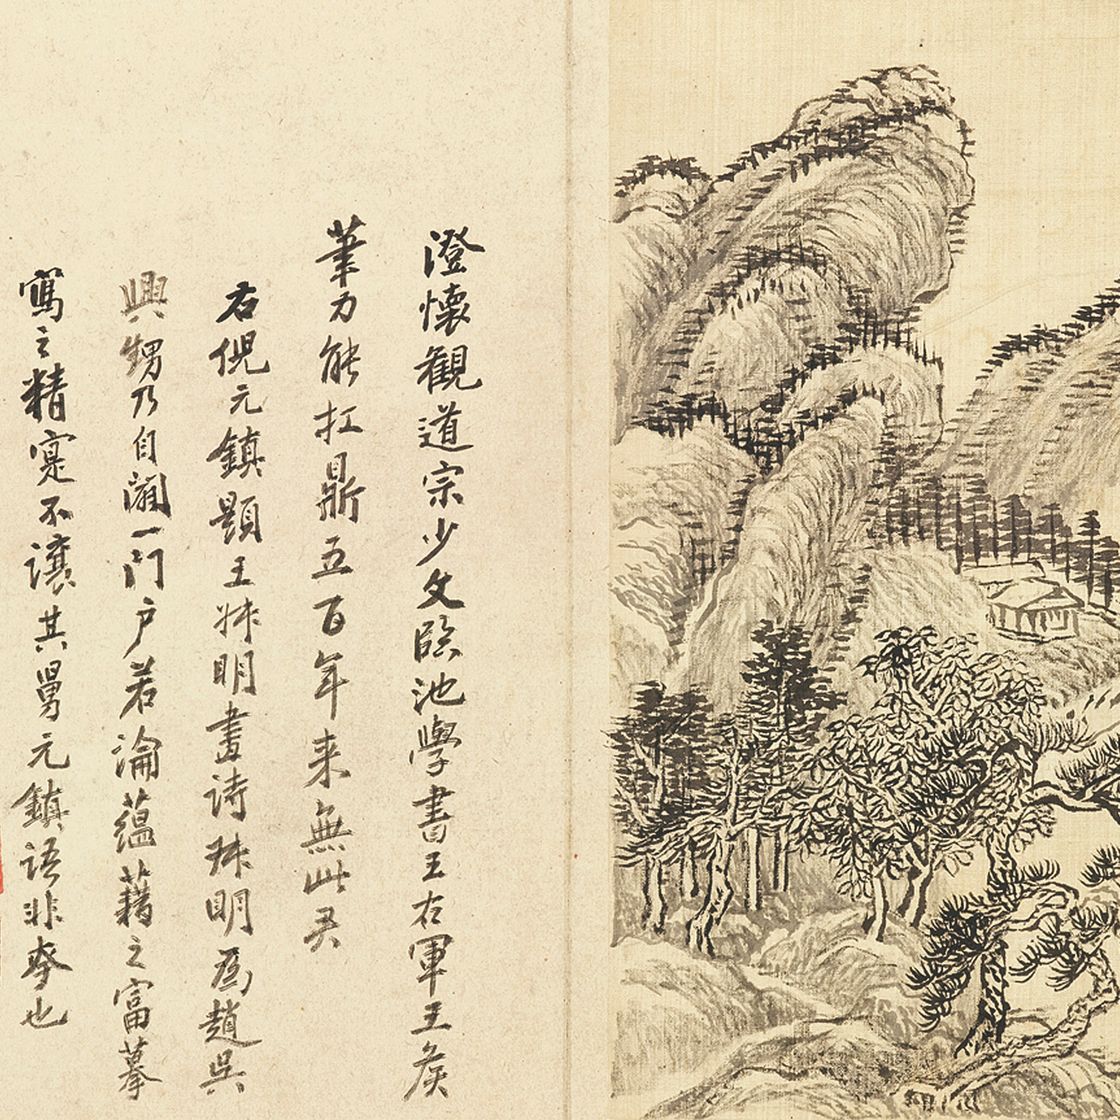 澄懷觀道宗少文臨池學書王右軍王矦
筆力能扛鼎五百年来無此君
右倪元鎮題王叔明畫詩叔明為趙吳
興甥乃自闢一門户若論蘊藉之富摹
寫之精寔不讓其舅元鎮語非夸也